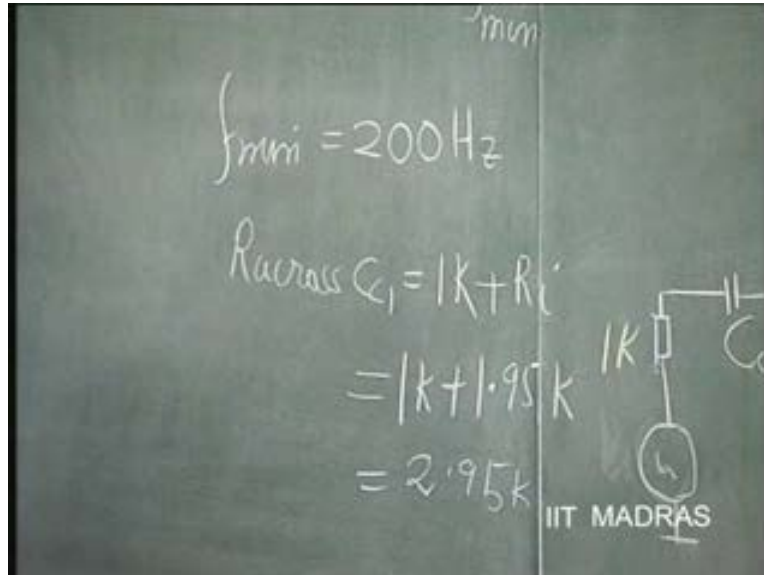 min
fmin = 200Hz
Racross CC1 = 1K+Ri
1K
= 1k+1.95k
= 2.95k
IIT MADRAS